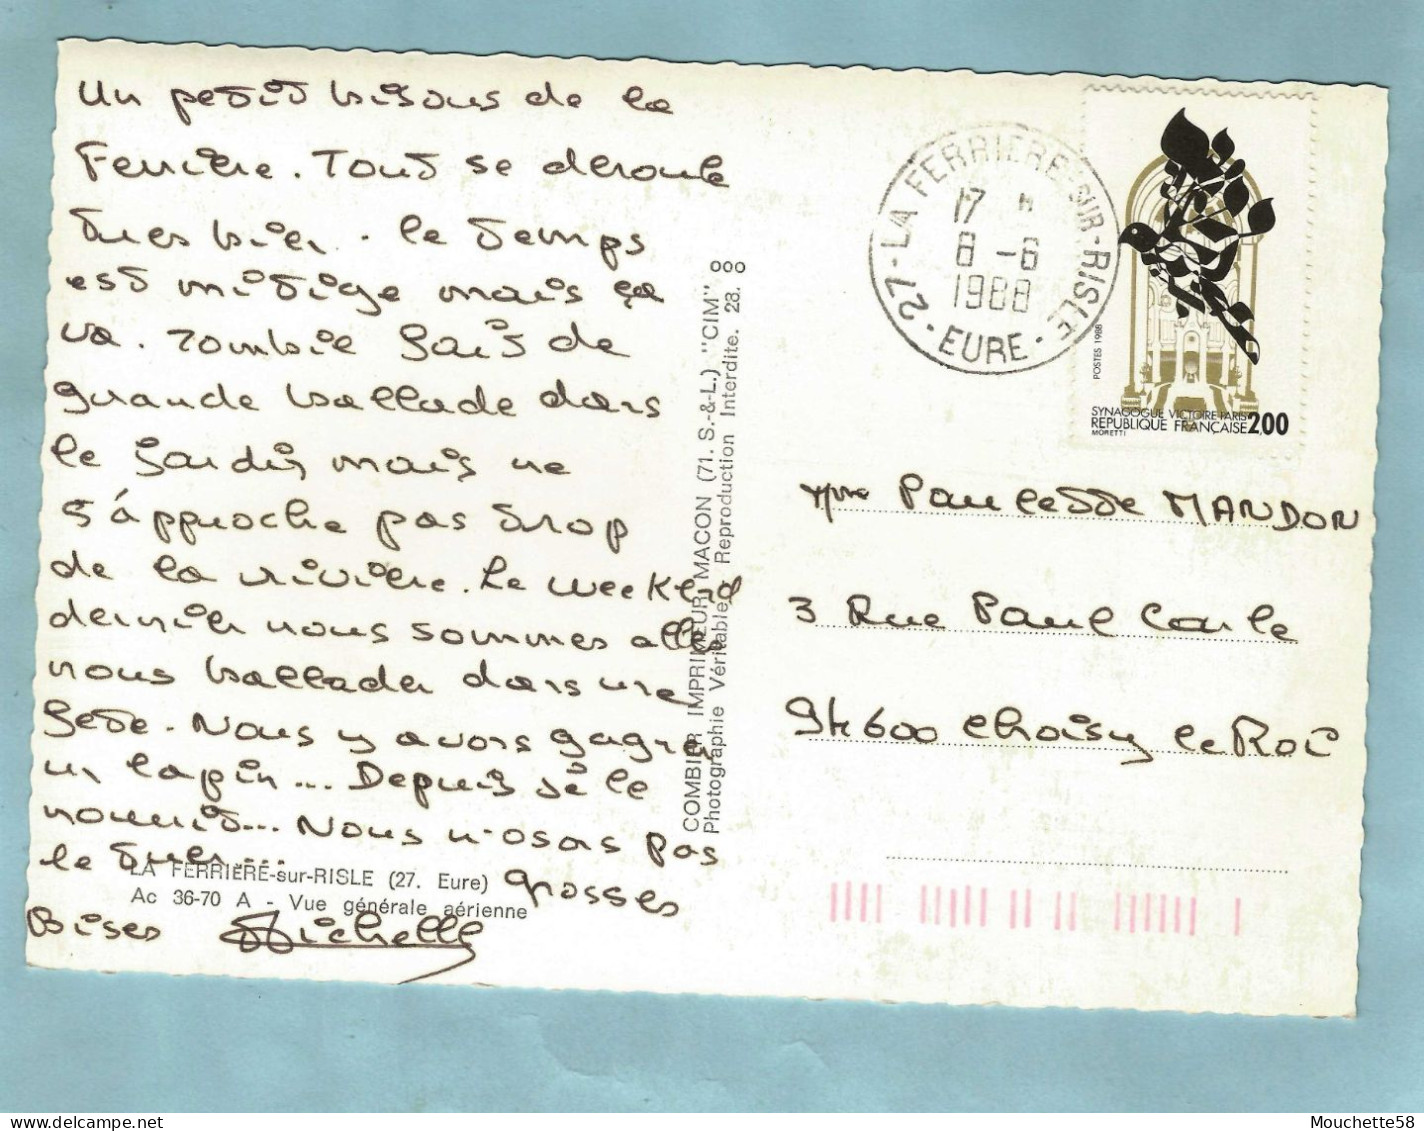 Un petit bisous de la
Ferrière. Tout se déroule
tres bien. le temps
est mitigé mais ça
va. Zombie fait de
grande ballade dans
le jardin mais ne
s'approche pas trop
de la rivière. Le weekend
dernier nous sommes allés
nous ballader dans une
fete. Nous y avons gagné
un lapin... Depuis je le
nourris... Nous n'osons pas
le tuer... grosses
Bises Michelle
LA FERRIÈRE-sur-RISLE (27. Eure)
Ac 36-70 A - Vue générale aérienne
COMBIER IMPRIMEUR MACON (71. S.-&-L.) "CIM"
Photographie Véritable Reproduction Interdite. 23.
ooo
27 - LA FERRIERE-SUR-RISLE - EURE
17 H
8 - 6
1988
POSTES 1988
SYNAGOGUE VICTOIRE-PARIS
REPUBLIQUE FRANÇAISE 2,00
MORETTI
Mme Paulette MANDON
3 Rue Paul Carle
94600 Choisy le Roi
Mouchette58